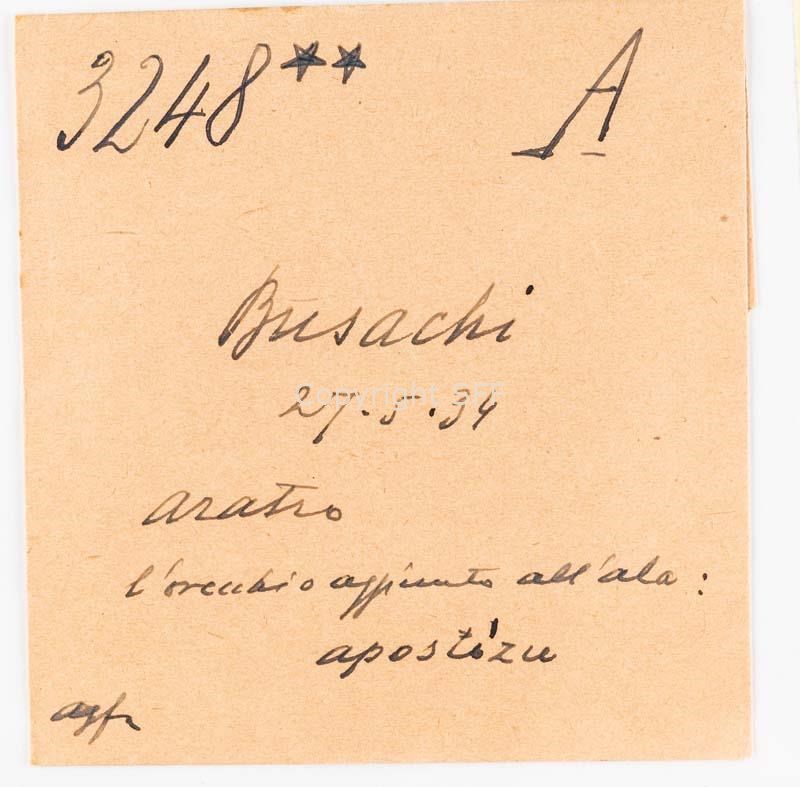 3248** A
Busachi
Copyright SFF
27.5.34
aratro
l'orecchio aggiunto all'ala:
apostízu
agfa